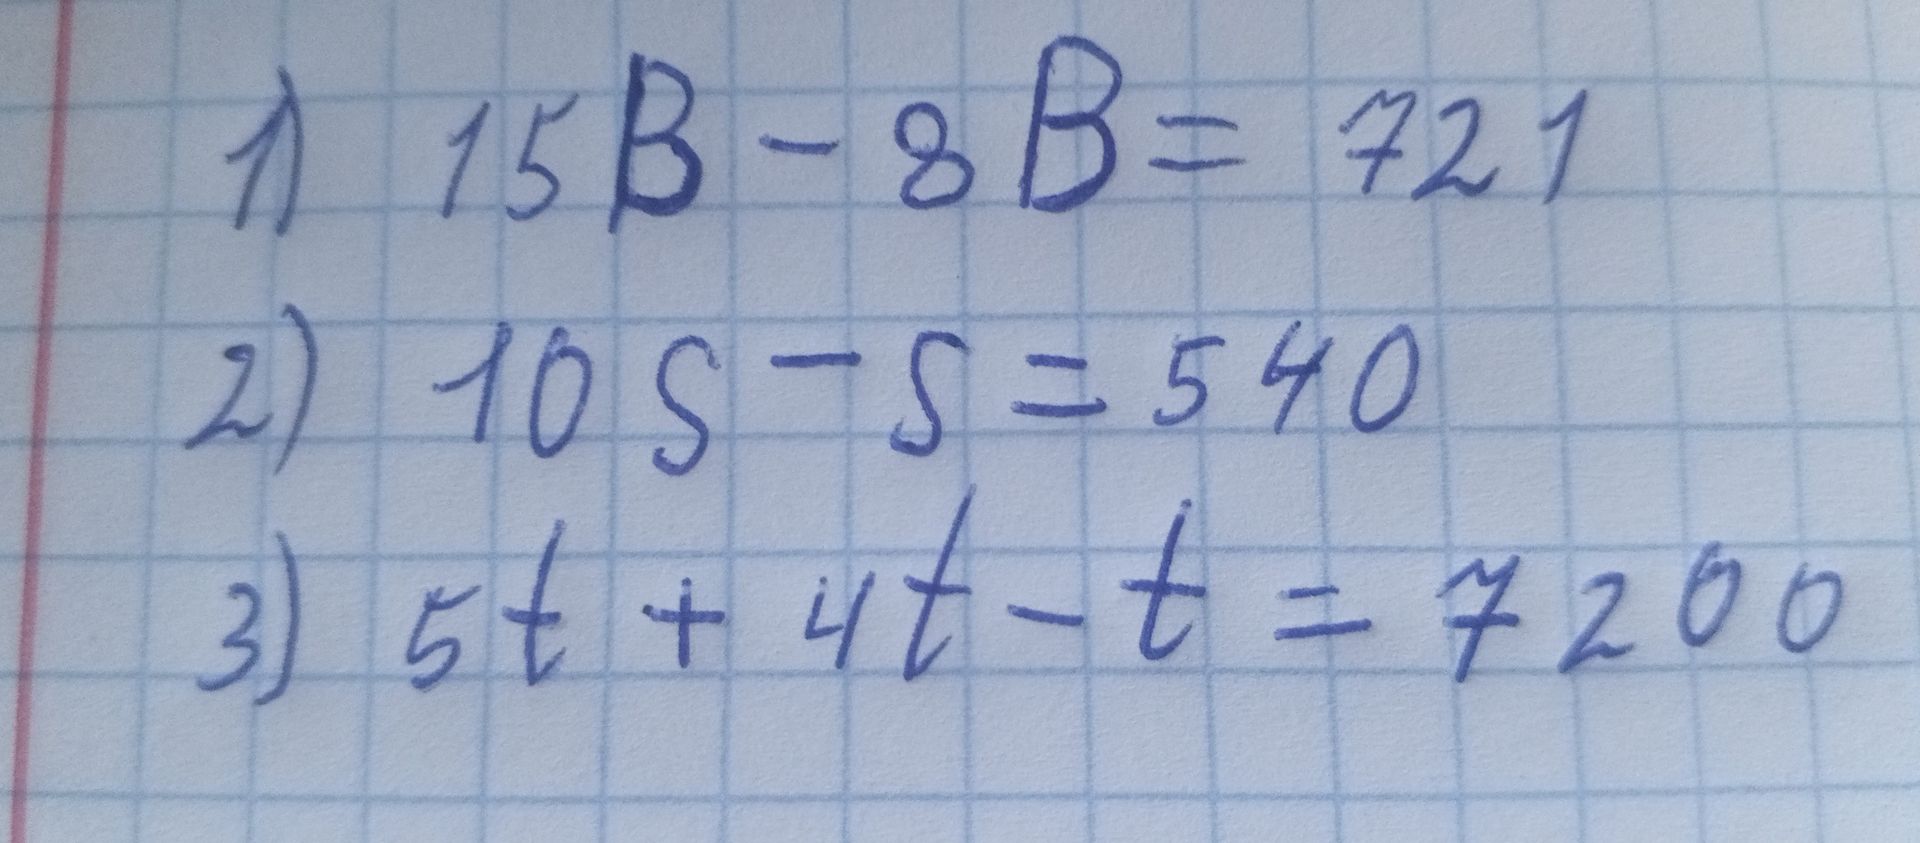 1) 15B - 8B = 721
2) 10S - S = 540
3) 5t + 4t - t = 7200